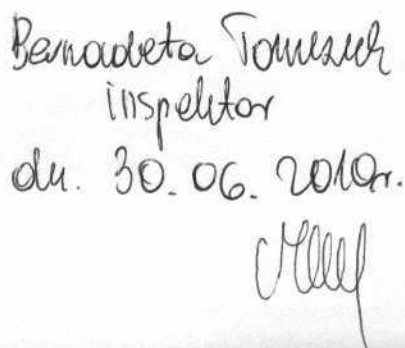 Bernadeta Tomczuk
inspektor
dn. 30.06.2010r.